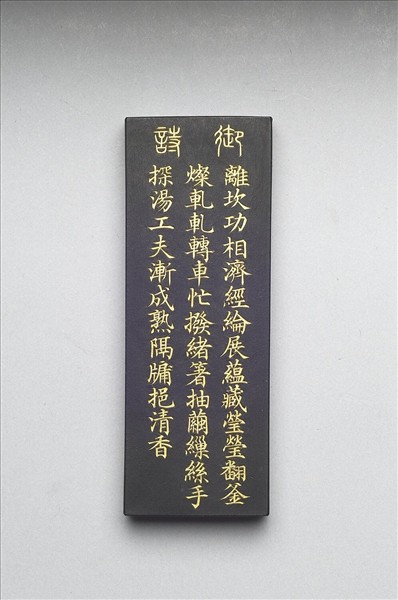 御詩
離坎功相濟經綸展蘊藏瑩瑩翻釜
燦軋軋轉車忙撥緒箸抽繭繅絲手
探湯工夫漸成熟隅牗挹清香